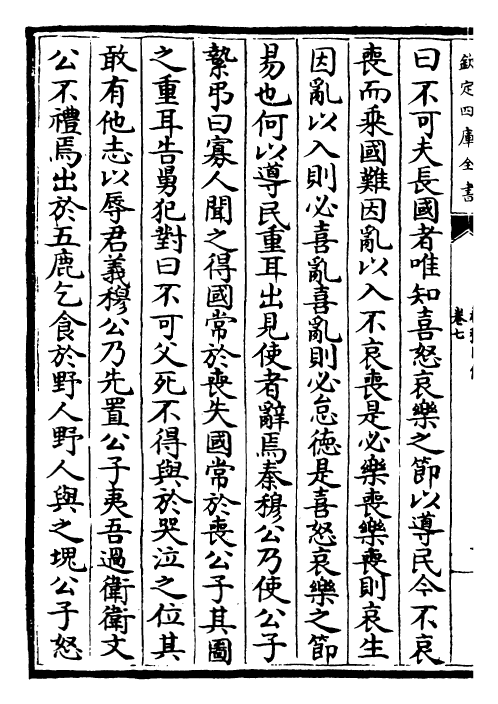 欽定四庫全書
卷七
曰不可夫長國者唯知喜怒哀樂之節以導民今不哀
喪而乘國難因亂以入不哀喪是必樂喪樂喪則哀生
因亂以入則必喜亂喜亂則必怠德是喜怒哀樂之節
易也何以導民重耳出見使者辭焉秦穆公乃使公子
縶弔曰寡人聞之得國常於喪失國常於喪公子其圖
之重耳告舅犯對曰不可父死不得與於哭泣之位其
敢有他志以辱君義穆公乃先置公子夷吾過衛衛文
公不禮焉出於五鹿乞食於野人野人與之塊公子怒